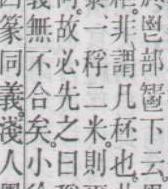 部下云
非謂几秠也
一稃二米則
故必先之曰
義無不合矣小
篆同義淺人